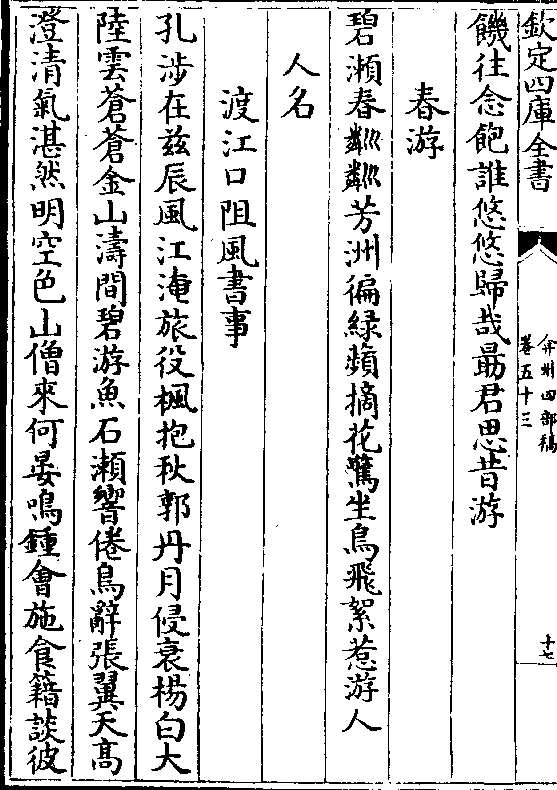 欽定四庫全書
弇州四部稿
卷五十三
十七
饑往念飽誰悠悠歸哉勗君思昔游
春游
碧瀨春粼粼芳洲徧緑蘋摘花驚坐鳥飛絮惹游人
人名
渡江口阻風書事
孔涉在兹辰風江淹旅役楓抱秋郭丹月侵衰楊白大
陸雲蒼蒼金山濤間碧游魚石瀨響倦鳥辭張翼天高
澄清氣湛然明空色山僧來何晏鳴鍾會施食籍談彼